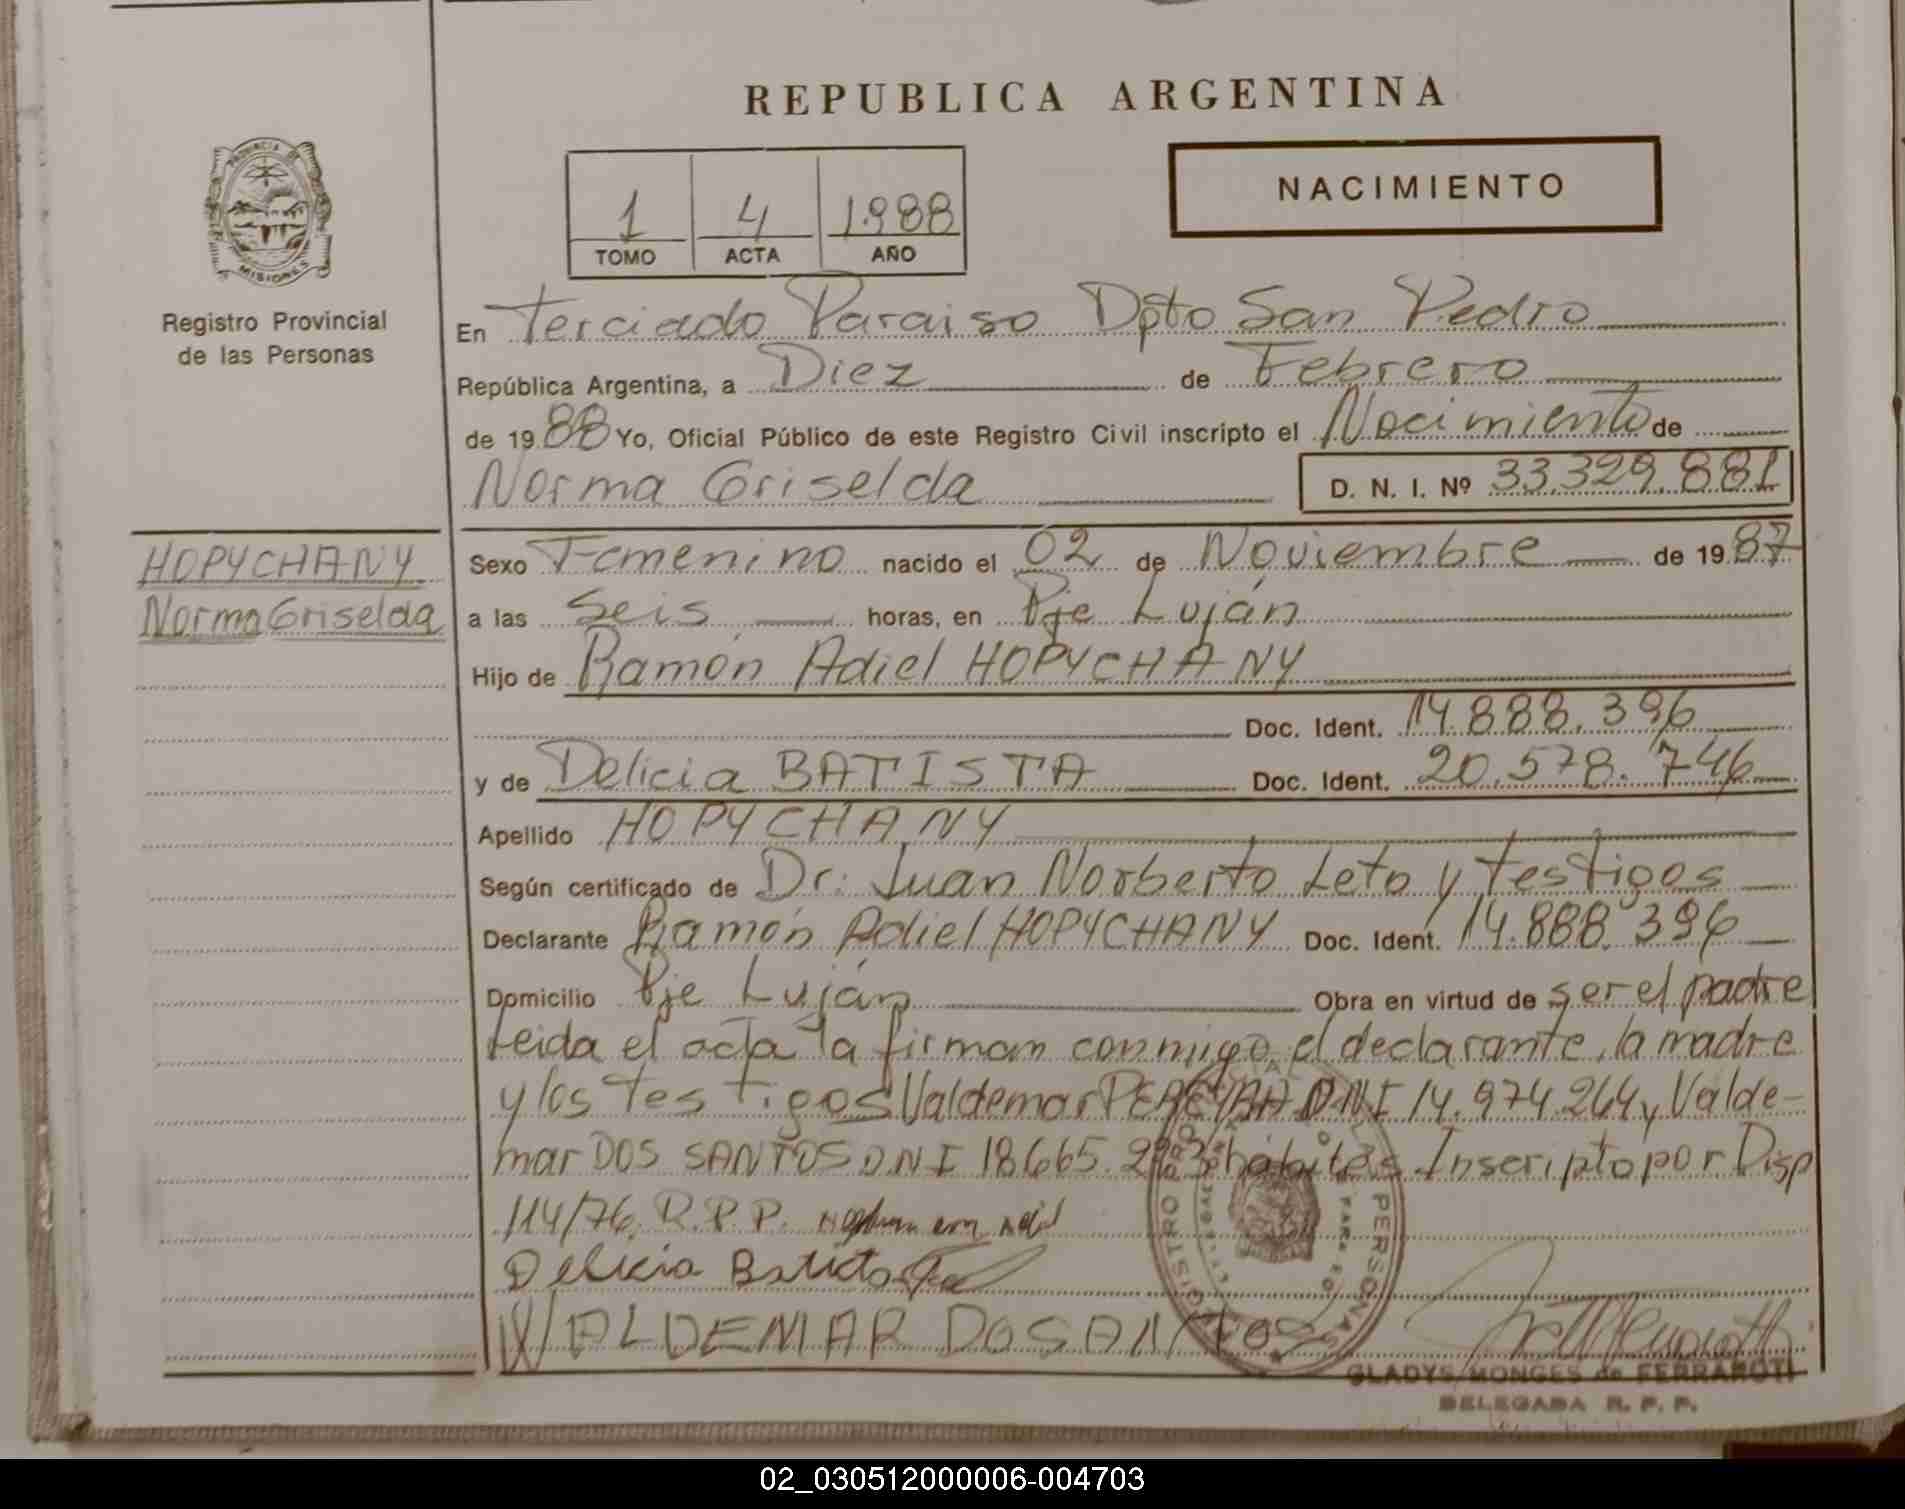 REPUBLICA ARGENTINA
PROVINCIA DE
MISIONES
Registro Provincial
de las Personas
1 4 1.988
TOMO ACTA AÑO
NACIMIENTO
En Terciado Paraiso Dpto San Pedro
República Argentina, a Diez de Febrero
de 19 88 Yo, Oficial Público de este Registro Civil inscripto el Nacimiento de
Norma Griselda D. N. I. Nº 33.329.881
HOPYCHANY
Norma Griselda
Sexo Femenino nacido el 02 de Noviembre de 19 87
a las Seis horas, en Pje Luján
Hijo de Ramón Adiel HOPYCHANY
Doc. Ident. 14.888.396
y de Delicia BATISTA Doc. Ident. 20.578.746
Apellido HOPYCHANY
Según certificado de Dr. Juan Norberto Leto y testigos
Declarante Ramón Adiel HOPYCHANY Doc. Ident. 14.888.396
Domicilio Pje Luján Obra en virtud de ser el padre
Leida el acta la firman conmigo, el declarante, la madre
y los testigos Valdemar PEREYRA DNI 14.974.264 y Valde-
mar DOS SANTOS DNI 18.665. hábiles. Inscripto por Disp
114/76. R.P.P.
Delicia Batista
WALDEMAR DOSANTOS
GLADYS MONGES de FERRAROTI
DELEGADA R. P. P.
02_030512000006-004703